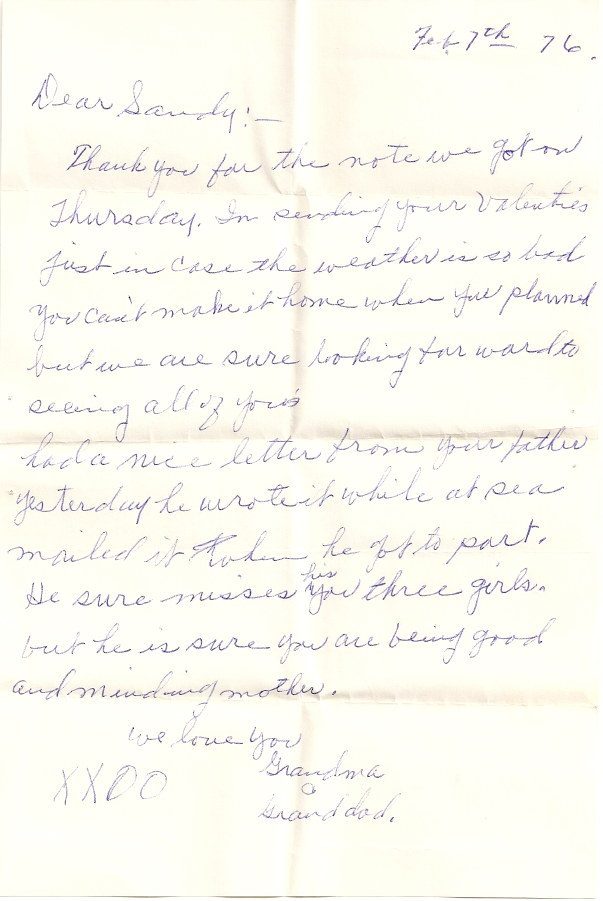 Feb 7th 76.
Dear Sandy:—
Thank you for the note we got on
Thursday. Im sending your Valenties
just in case the weather is so bad
you can't make it home when you planned
but we are sure looking forward to
seeing all of you's
had a nice letter from your father
yesterday he wrote it while at sea
mailed it when he got to port.
He sure misses his three girls.
but he is sure you are being good
and minding mother.
we love you
XXOO
Grandma
&
Granddad.